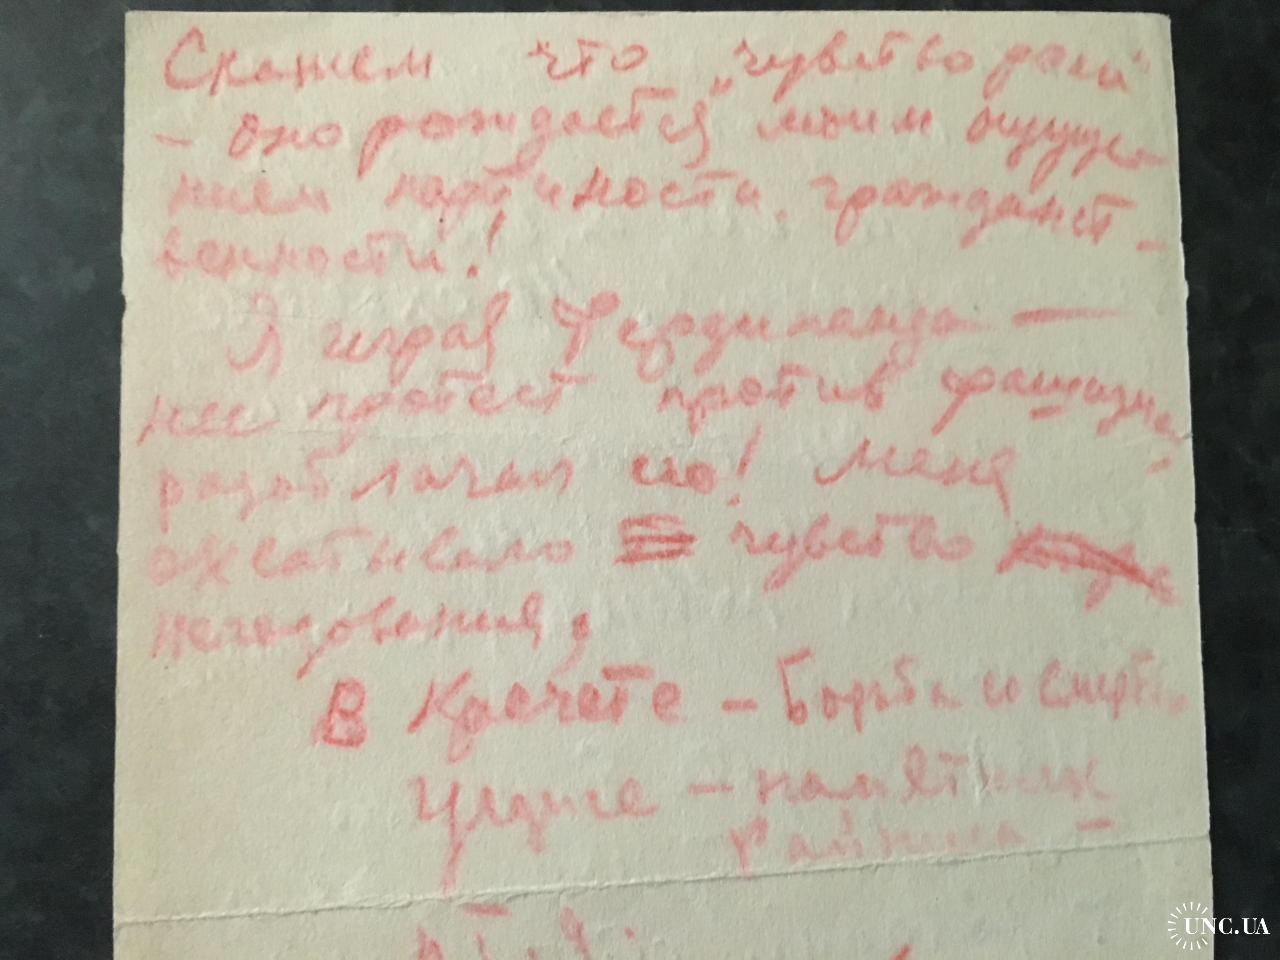 Скажем что „чувство роли"
– оно рождается моим ощуще
нием партийности, гражданст-
венности!
Я играя Фердинанда —
нес протест против фашизма
разоблачал его! Меня
охватывало чувство
негодования.
В Кречете – борьба и смерть
Улдисе – памятник
Райниса –
UNC.UA